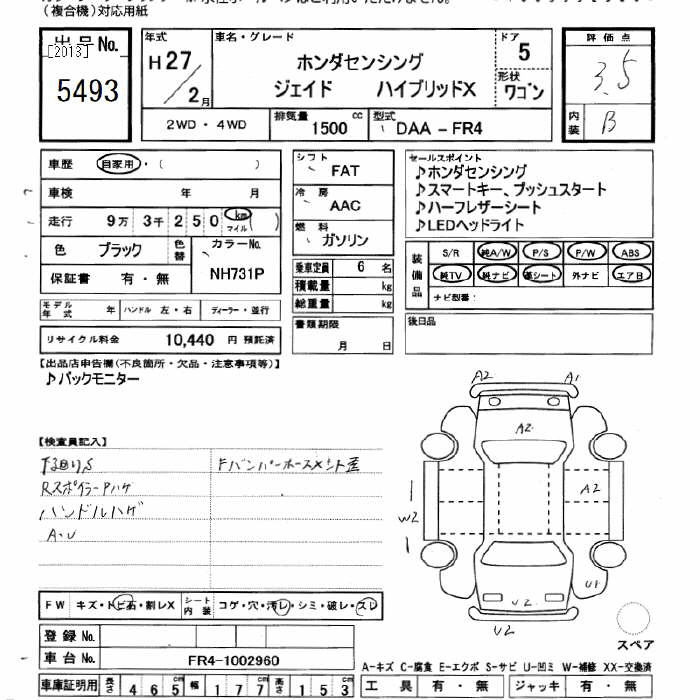 (複合機)対応用紙
出品No.
[2013]
5493
年式
H27/2月
車名・グレード
ホンダセンシング
ジェイド ハイブリッドX
ドア
5
形状
ワゴン
評価点
3.5
内装
B
2WD・4WD
排気量 1500 cc
型式 DAA-FR4
車歴 自家用・( )
車検 年 月
走行 9万 3千 2 5 0 km マイル ( )
色 ブラック 色替
カラーNo. NH731P
保証書 有・無
モデル年式 年
ハンドル 左・右
ディーラー・並行
リサイクル料金 10,440 円 預託済
シフト
FAT
冷房
AAC
燃料
ガソリン
乗車定員 6 名
積載量 kg
総重量 kg
書類期限
月 日
セールスポイント
♪ホンダセンシング
♪スマートキー、プッシュスタート
♪ハーフレザーシート
♪LEDヘッドライト
装備品
S/R 純A/W P/S P/W ABS
純TV 純ナビ 革シート 外ナビ エアB
ナビ型番:
後日品
【出品店申告欄(不良箇所・欠品・注意事項等)】
♪バックモニター
【検査員記入】
下回りS
Rスポイラーハゲ
ハンドルハゲ
A・U
A2 A1
A2
A2
W2
U1
U2
U2
スペア
FW キズ・トビ石・割レX
シート内装 コゲ・穴・汚レ・シミ・破レ・スレ
登録No.
車台No. FR4-1002960
車庫証明用 長さ 465 cm 幅 177 cm 高さ 153 cm
A-キズ C-腐食 E-エクボ S-サビ U-凹ミ W-補修 XX-交換済
工具 有・無 ジャッキ 有・無